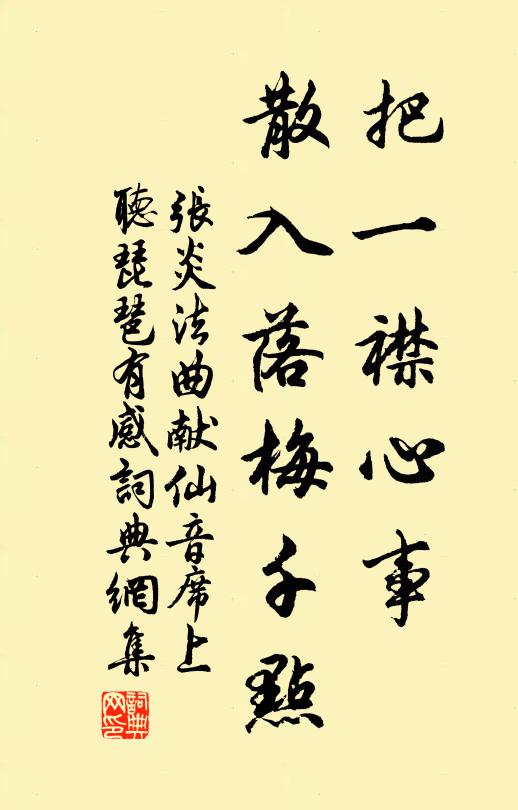 把一襟心事
散入落梅千點
張炎法曲献仙音席上
聽琵琶有感詞典網集
詞典
网印